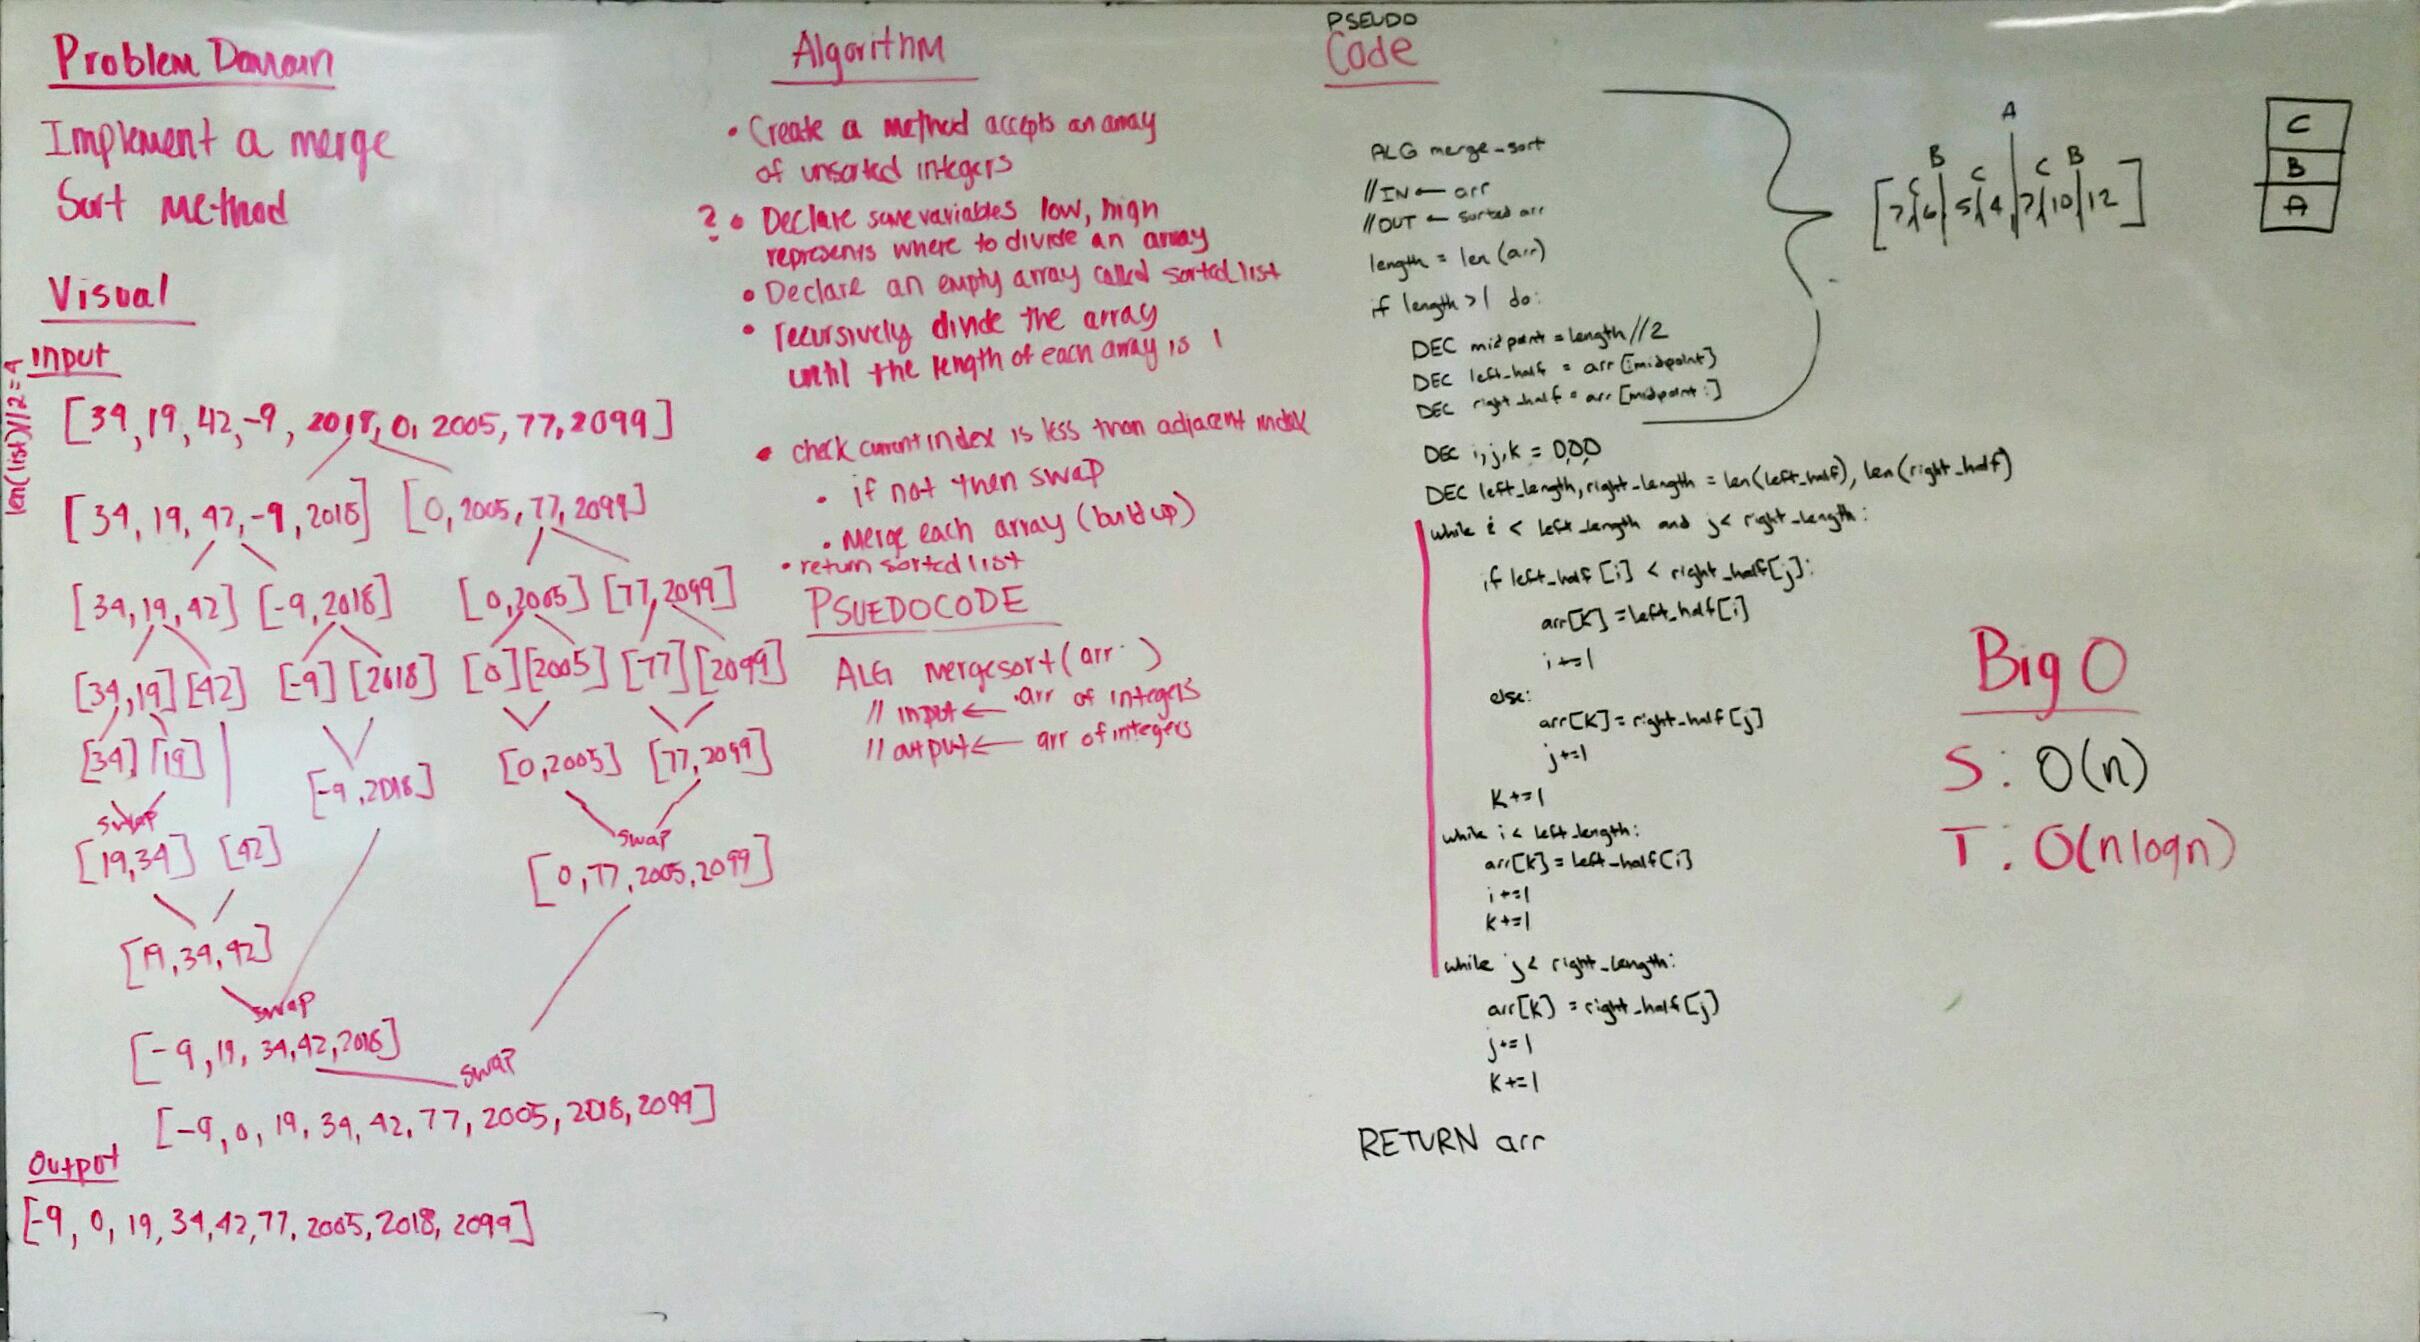 Problem Domain
Implement a merge
Sort Method
Visual
Input
len(list)//2=4
[34,19,42,-9, 2018, 0, 2005, 77, 2099]
[34, 19, 42, -9, 2018] [0, 2005, 77, 2099]
[34,19,42] [-9,2018] [0,2005] [77,2099]
[34,19] [42] [-9] [2018] [0] [2005] [77] [2099]
[34] [19] [-9,2018] [0,2005] [77,2099]
swap
[19,34] [42]
swap
[0,77,2005,2099]
[19,34,42]
swap
[-9,19,34,42,2018]
swap
[-9,0,19,34,42,77,2005,2018,2099]
Output
[-9, 0, 19, 34,42,77, 2005, 2018, 2099]
Algorithm
• Create a method accepts an array
of unsorted integers
? • Declare some variables low, high
represents where to divide an array
• Declare an empty array called sorted list
• recursively divide the array
until the length of each array is 1
• check current index is less than adjacent index
• if not then swap
• Merge each array (build up)
• return sorted list
PSUEDOCODE
ALG mergesort(arr )
// input ← arr of integers
// output ← arr of integers
PSEUDO
Code
ALG merge_sort
//IN ← arr
//OUT ← sorted arr
length = len (arr)
if length >1 do:
DEC midpoint = length //2
DEC left_half = arr [:midpoint]
DEC right_half = arr [midpoint:]
DEC i,j,k = 0,0,0
DEC left_length, right_length = len(left_half), len(right_half)
while i < left_length and j< right_length:
if left_half [i] < right_half[j]:
arr[K] = left_half[i]
i+=1
else:
arr[K] = right_half[j]
j+=1
K+=1
while i < left_length:
arr[k] = left_half[i]
i+=1
K+=1
while j< right_length:
arr[k] = right_half[j]
j+=1
K+=1
RETURN arr
A
B C B
C C
[7,6,5,4,7,10,12]
C
B
A
Big O
S: O(n)
T: O(nlogn)